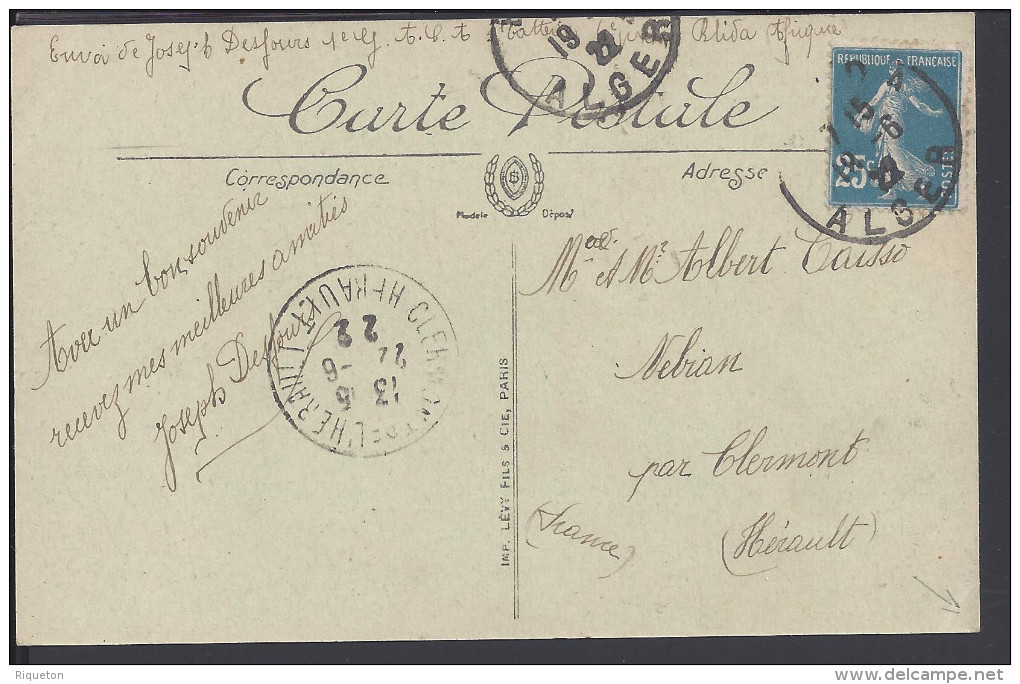 Envoi de Joseph Desfours Blida Afrique
Carte Postale
RÉPUBLIQUE FRANÇAISE
25c
POSTES
19
22
ALGER
7 15
19 -6
22
ALGER
Correspondance
Adresse
Modele Déposé
Avec un bon souvenir
recevez mes meilleures amitiés
Joseph Desfours
CLERMONT DE L'HERAULT
HERAULT
13 15
22 -6
22
IMP. LÉVY FILS & CIE, PARIS
Mme et Mr Albert Caisso
Nebian
par Clermont
(Hérault)
(France)
Riqueton
delcampe.net